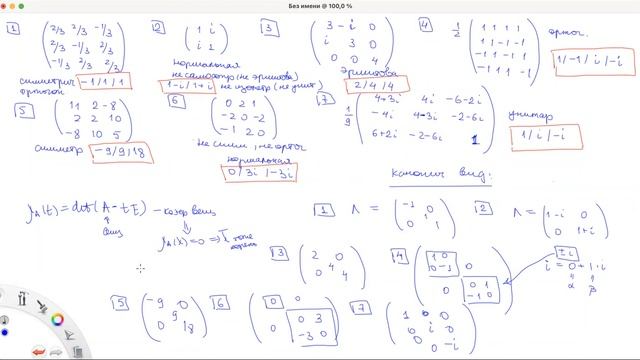 Без имени @ 100,0 %
1 ( 2/3 2/3 -1/3
2/3 -1/3 2/3
-1/3 2/3 2/3 )
симметрич
ортогон
-1/1/1
2 ( 1 i
i 1 )
нормальная
не самосопр (не эрмитова)
1-i/1+i не изометр (не унит)
3 ( 3 -i 0
i 3 0
0 0 4 )
эрмитова
2/4/4
4 1/2 ( 1 1 1 1
1 1 -1 -1
-1 1 -1 1
-1 1 1 -1 )
ортог.
1/-1/i/-i
5 ( 11 2 -8
2 2 10
-8 10 5 )
симметр -9/9/18
6 ( 0 2 1
-2 0 -2
-1 2 0 )
не симм, не ортог
нормальная
0/3i/-3i
7 1/9 ( 4+3i 4i -6-2i
-4i 4-3i -2-6i
6+2i -2-6i 1 )
унитар
1/i/-i
канонич вид:
(t) = det(A - tE) - коэф вещ
вещ
(λ)=0 ⇒ λ̄ тоже
корень
1 Λ = ( -1 0
1
0 1 )
2 Λ = ( 1-i 0
0 1+i )
3 ( 2 0
4
0 4 )
4 ( 1 0
0 -1 0
0 0 1
-1 0 )
±i
i = 0 + 1·i
α β
5 ( -9 0
9
0 18 )
6 ( 0 0
0 0 3
-3 0 )
7 ( 1 0 0
0 i 0
0 0 -i )